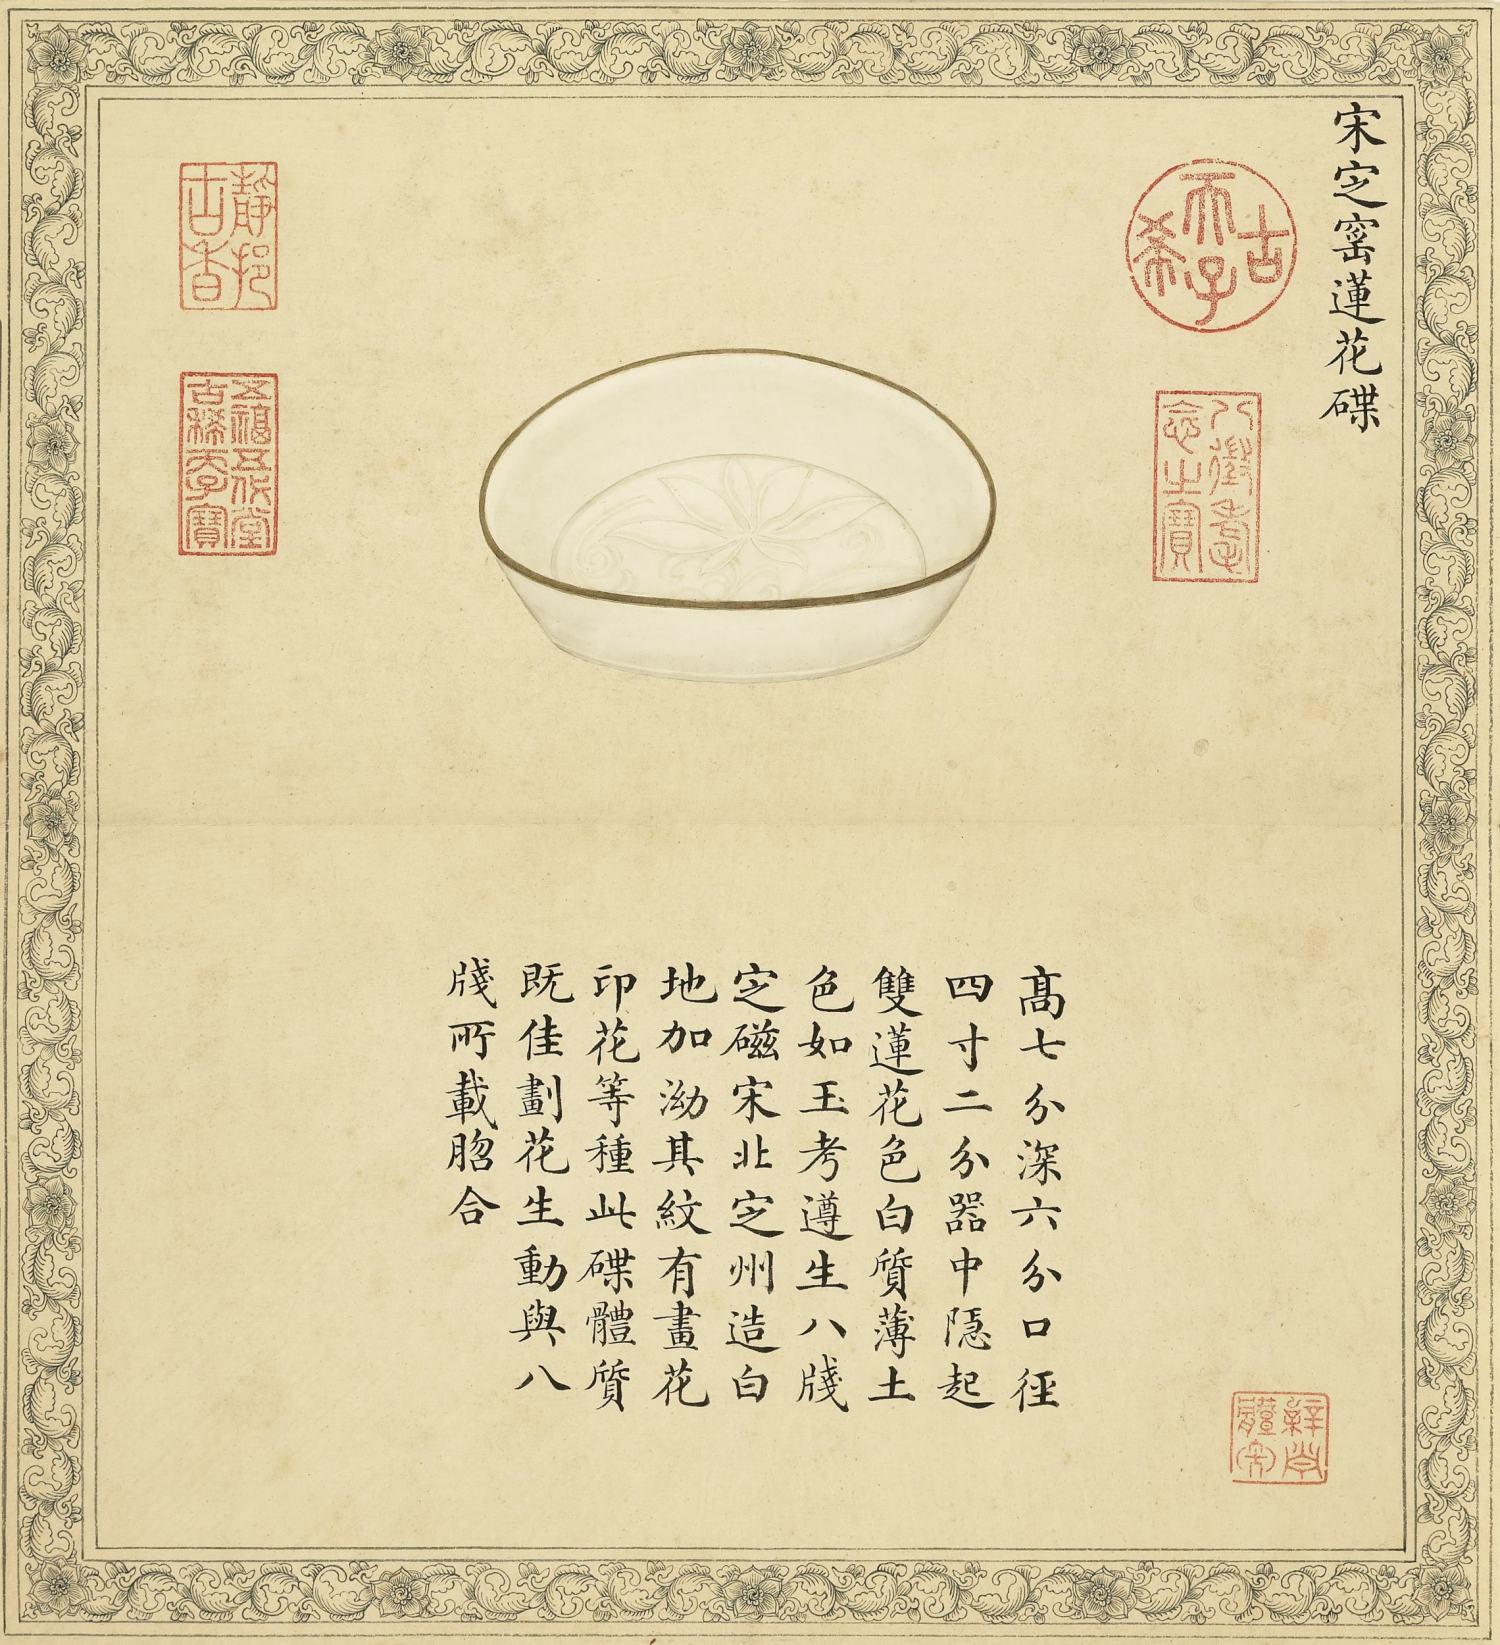 宋定窑蓮花碟
古希天子
八徵耄念之寶
高七分深六分口徑
四寸二分器中隱起
雙蓮花色白質薄土
色如玉考遵生八牋
定磁宋北定州造白
地加泑其紋有畫花
印花等種此碟體質
既佳劃花生動與八
牋所載脗合
靜挹古香
五福五代堂古稀天子寶